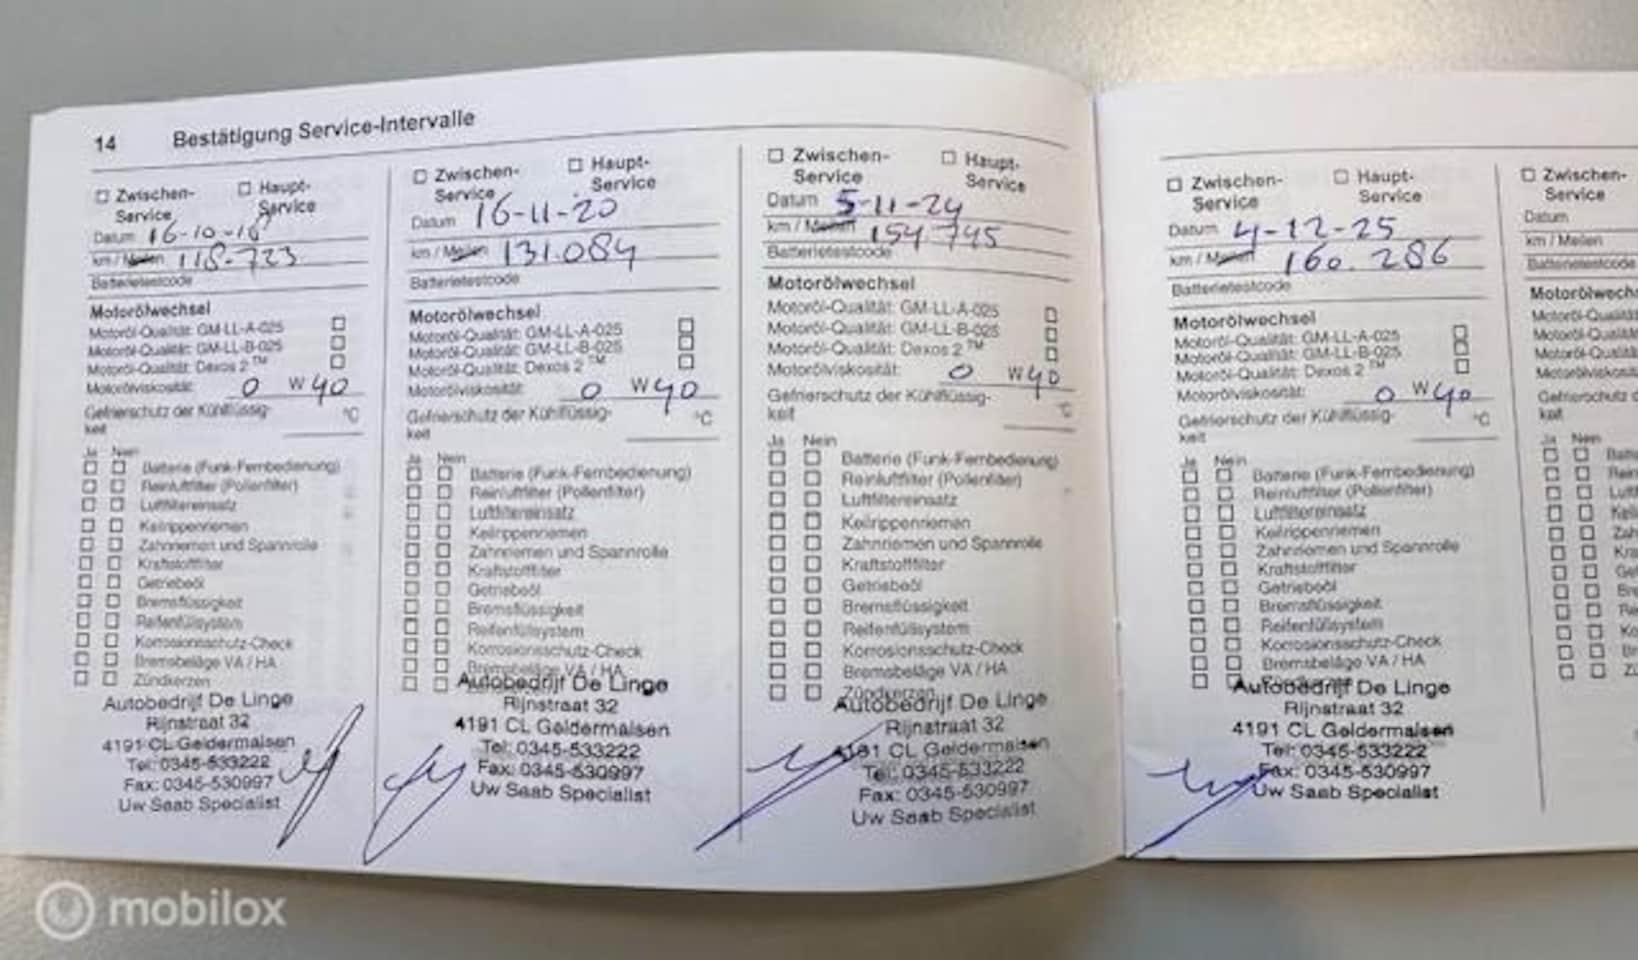 14 Bestätigung Service-Intervalle
☐ Zwischen- ☐ Haupt-
Service Service
Datum 16-10-18
km / Meilen 118.723
Batterietestcode
Motorölwechsel
Motoröl-Qualität: GM-LL-A-025 ☐
Motoröl-Qualität: GM-LL-B-025 ☐
Motoröl-Qualität: Dexos 2™ ☐
Motorölviskosität: 0 W 40
Gefrierschutz der Kühlflüssig-
keit °C
Ja Nein
☐ ☐ Batterie (Funk-Fernbedienung)
☐ ☐ Reinluftfilter (Pollenfilter)
☐ ☐ Luftfiltereinsatz
☐ ☐ Keilrippenriemen
☐ ☐ Zahnriemen und Spannrolle
☐ ☐ Kraftstofffilter
☐ ☐ Getriebeöl
☐ ☐ Bremsflüssigkeit
☐ ☐ Reifenfüllsystem
☐ ☐ Korrosionsschutz-Check
☐ ☐ Bremsbeläge VA / HA
☐ ☐ Zündkerzen
Autobedrijf De Linge
Rijnstraat 32
4191 CL Geldermalsen
Tel: 0345-533222
Fax: 0345-530997
Uw Saab Specialist
☐ Zwischen- ☐ Haupt-
Service Service
Datum 16-11-20
km / Meilen 131.084
Batterietestcode
Motorölwechsel
Motoröl-Qualität: GM-LL-A-025 ☐
Motoröl-Qualität: GM-LL-B-025 ☐
Motoröl-Qualität: Dexos 2™ ☐
Motorölviskosität: 0 W 40
Gefrierschutz der Kühlflüssig-
keit °C
Ja Nein
☐ ☐ Batterie (Funk-Fernbedienung)
☐ ☐ Reinluftfilter (Pollenfilter)
☐ ☐ Luftfiltereinsatz
☐ ☐ Keilrippenriemen
☐ ☐ Zahnriemen und Spannrolle
☐ ☐ Kraftstofffilter
☐ ☐ Getriebeöl
☐ ☐ Bremsflüssigkeit
☐ ☐ Reifenfüllsystem
☐ ☐ Korrosionsschutz-Check
☐ ☐ Bremsbeläge VA / HA
☐ ☐
Autobedrijf De Linge
Rijnstraat 32
4191 CL Geldermalsen
Tel: 0345-533222
Fax: 0345-530997
Uw Saab Specialist
☐ Zwischen- ☐ Haupt-
Service Service
Datum 5-11-24
km / Meilen 154.745
Batterietestcode
Motorölwechsel
Motoröl-Qualität: GM-LL-A-025 ☐
Motoröl-Qualität: GM-LL-B-025 ☐
Motoröl-Qualität: Dexos 2™ ☐
Motorölviskosität: 0 W 40
Gefrierschutz der Kühlflüssig-
keit °C
Ja Nein
☐ ☐ Batterie (Funk-Fernbedienung)
☐ ☐ Reinluftfilter (Pollenfilter)
☐ ☐ Luftfiltereinsatz
☐ ☐ Keilrippenriemen
☐ ☐ Zahnriemen und Spannrolle
☐ ☐ Kraftstofffilter
☐ ☐ Getriebeöl
☐ ☐ Bremsflüssigkeit
☐ ☐ Reifenfüllsystem
☐ ☐ Korrosionsschutz-Check
☐ ☐ Bremsbeläge VA / HA
☐ ☐ Zündkerzen
Autobedrijf De Linge
Rijnstraat 32
4191 CL Geldermalsen
Tel: 0345-533222
Fax: 0345-530997
Uw Saab Specialist
☐ Zwischen- ☐ Haupt-
Service Service
Datum 4-12-25
km / Meilen 160.286
Batterietestcode
Motorölwechsel
Motoröl-Qualität: GM-LL-A-025 ☐
Motoröl-Qualität: GM-LL-B-025 ☐
Motoröl-Qualität: Dexos 2™ ☐
Motorölviskosität: 0 W 40
Gefrierschutz der Kühlflüssig-
keit °C
Ja Nein
☐ ☐ Batterie (Funk-Fernbedienung)
☐ ☐ Reinluftfilter (Pollenfilter)
☐ ☐ Luftfiltereinsatz
☐ ☐ Keilrippenriemen
☐ ☐ Zahnriemen und Spannrolle
☐ ☐ Kraftstofffilter
☐ ☐ Getriebeöl
☐ ☐ Bremsflüssigkeit
☐ ☐ Reifenfüllsystem
☐ ☐ Korrosionsschutz-Check
☐ ☐ Bremsbeläge VA / HA
☐ ☐
Autobedrijf De Linge
Rijnstraat 32
4191 CL Geldermalsen
Tel: 0345-533222
Fax: 0345-530997
Uw Saab Specialist
☐ Zwischen-
Service
Datum
km / Meilen
Batterietestcode
Motorölwechs
Motoröl-Qualität
Motoröl-Qualität
Motoröl-Qualität
Motorölviskosit
Gefrierschutz d
keit
Ja Nein
mobilox